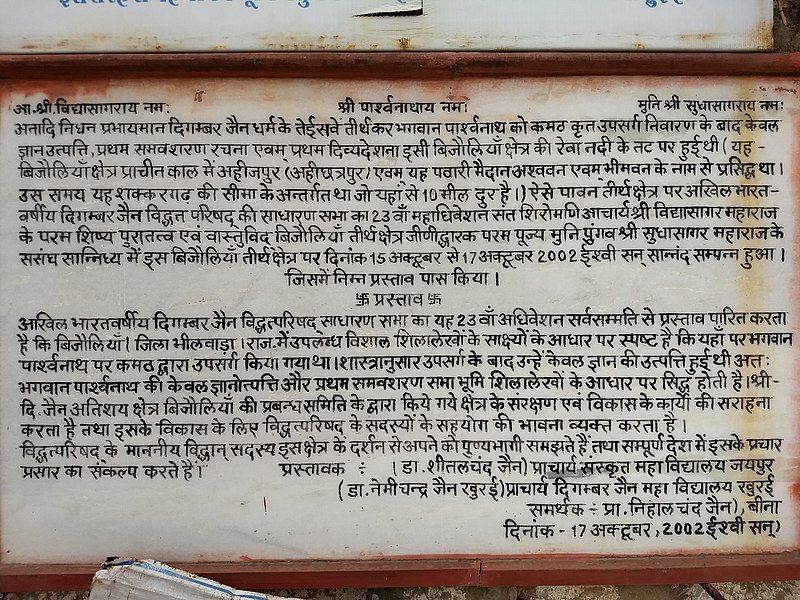 आ.श्री विद्यासागराय नमः श्री पार्श्वनाथाय नमः मुनि श्री सुधासागराय नमः
अनादि निधन प्रभायमान दिगम्बर जैन धर्म के तेईसवें तीर्थंकर भगवान पार्श्वनाथ को कमठ कृत उपसर्ग निवारण के बाद केवल
ज्ञान उत्पत्ति, प्रथम समवशारण रचना एवम् प्रथम दिव्यदेशना इसी बिजौलियाँ क्षेत्र की रेवा नदी के तट पर हुई थी (यह -
बिजौलियाँ क्षेत्र प्राचीन काल में अहीजपुर (अहीछत्रपुर) एवम् यह पठारी मैदान अश्ववन एवम भीमवन के नाम से प्रसिद्ध था।
उस समय यह शक्करगढ़ की सीमा के अन्तर्गत था जो यहां से 10 मील दुर है।) ऐसे पावन तीर्थक्षेत्र पर अखिल भारत-
वर्षीय दिगम्बर जैन विद्वत्त परिषद् की साधारण सभा का 23 वाँ महाधिवेशन संत शिरोमणि आचार्य श्री विद्यासागर महाराज
के परम शिष्य पुरातत्व एवं वास्तुविद् बिजौलियाँ तीर्थक्षेत्र जीर्णोद्धारक परम पूज्य मुनि पुंगव श्री सुधासागर महाराज के
ससंघ सान्निध्य में इस बिजौलियाँ तीर्थक्षेत्र पर दिनांक 15 अक्टूबर से 17 अक्टूबर 2002 ईश्वी सन् सानंद सम्पन्न हुआ।
जिसमें निम्न प्रस्ताव पास किया।
卐 प्रस्ताव 卐
अखिल भारतवर्षीय दिगम्बर जैन विद्वत्परिषद् साधारण सभा का यह 23 वाँ अधिवेशन सर्वसम्मति से प्रस्ताव पारित करता
है कि बिजौलियाँ। जिला भीलवाड़ा। राज. में उपलब्ध विशाल शिलालेखों के साक्ष्यों के आधार पर स्पष्ट है कि यहाँ पर भगवान
पार्श्वनाथ पर कमठ द्वारा उपसर्ग किया गया था। शास्त्रानुसार उपसर्ग के बाद उन्हें केवल ज्ञान की उत्पत्ति हुई थी अतः
भगवान पार्श्वनाथ की केवल ज्ञानोत्पत्ति और प्रथम समवशरण सभा भूमि शिलालेखों के आधार पर सिद्ध होती है। श्री-
दि. जैन अतिशय क्षेत्र बिजौलियाँ की प्रबन्ध समिति के द्वारा किये गये क्षेत्र के संरक्षण एवं विकास के कार्यों की सराहना
करता है तथा इसके विकास के लिए विद्वत्परिषद् के सदस्यों के सहयोग की भावना व्यक्त करता है।
विद्वत्परिषद् के माननीय विद्वान् सदस्य इस क्षेत्र के दर्शन से अपने को पुण्यभागी समझते हैं तथा सम्पूर्ण देश में इसके प्रचार
प्रसार का संकल्प करते हैं। प्रस्तावक ÷ (डा. शीतलचंद जैन) प्राचार्य संस्कृत महा विद्यालय जयपुर
(डा. नेमीचन्द्र जैन खुरई) प्राचार्य दिगम्बर जैन महा विद्यालय खुरई
समर्थक ÷ प्रा. निहाल चंद जैन), बीना
दिनांक - 17 अक्टूबर, 2002 ईश्वी सन्)